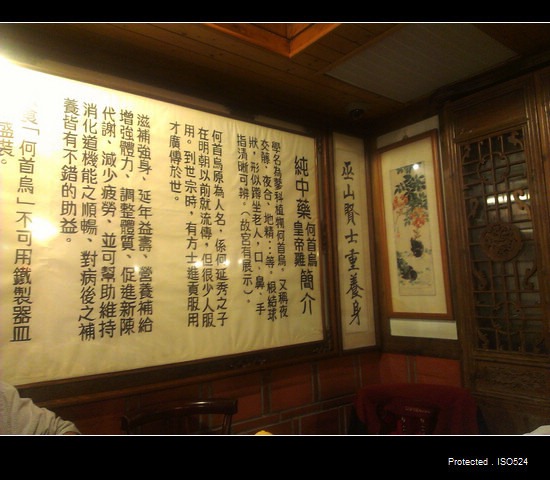 巫山賢士重養身
純中藥何首烏皇帝雞簡介
學名為蓼科植物何首烏，又稱夜
交藤，夜合，地精…等，根結球
狀，形似蹲坐老人，口、鼻、手
指清晰可辨，（故宮有展示）。
何首烏原為人名，係何延秀之子
在明朝以前就流傳，但很少人服
用。到世宗時，有方士進貢服用
才廣傳於世。
滋補強身，延年益壽、營養補給
增強體力、調整體質、促進新陳
代謝、減少疲勞，並可幫助維持
消化道機能之順暢、對病後之補
養皆有不錯的助益。
「何首烏」不可用鐵製器皿
盛裝。
Protected . ISO524